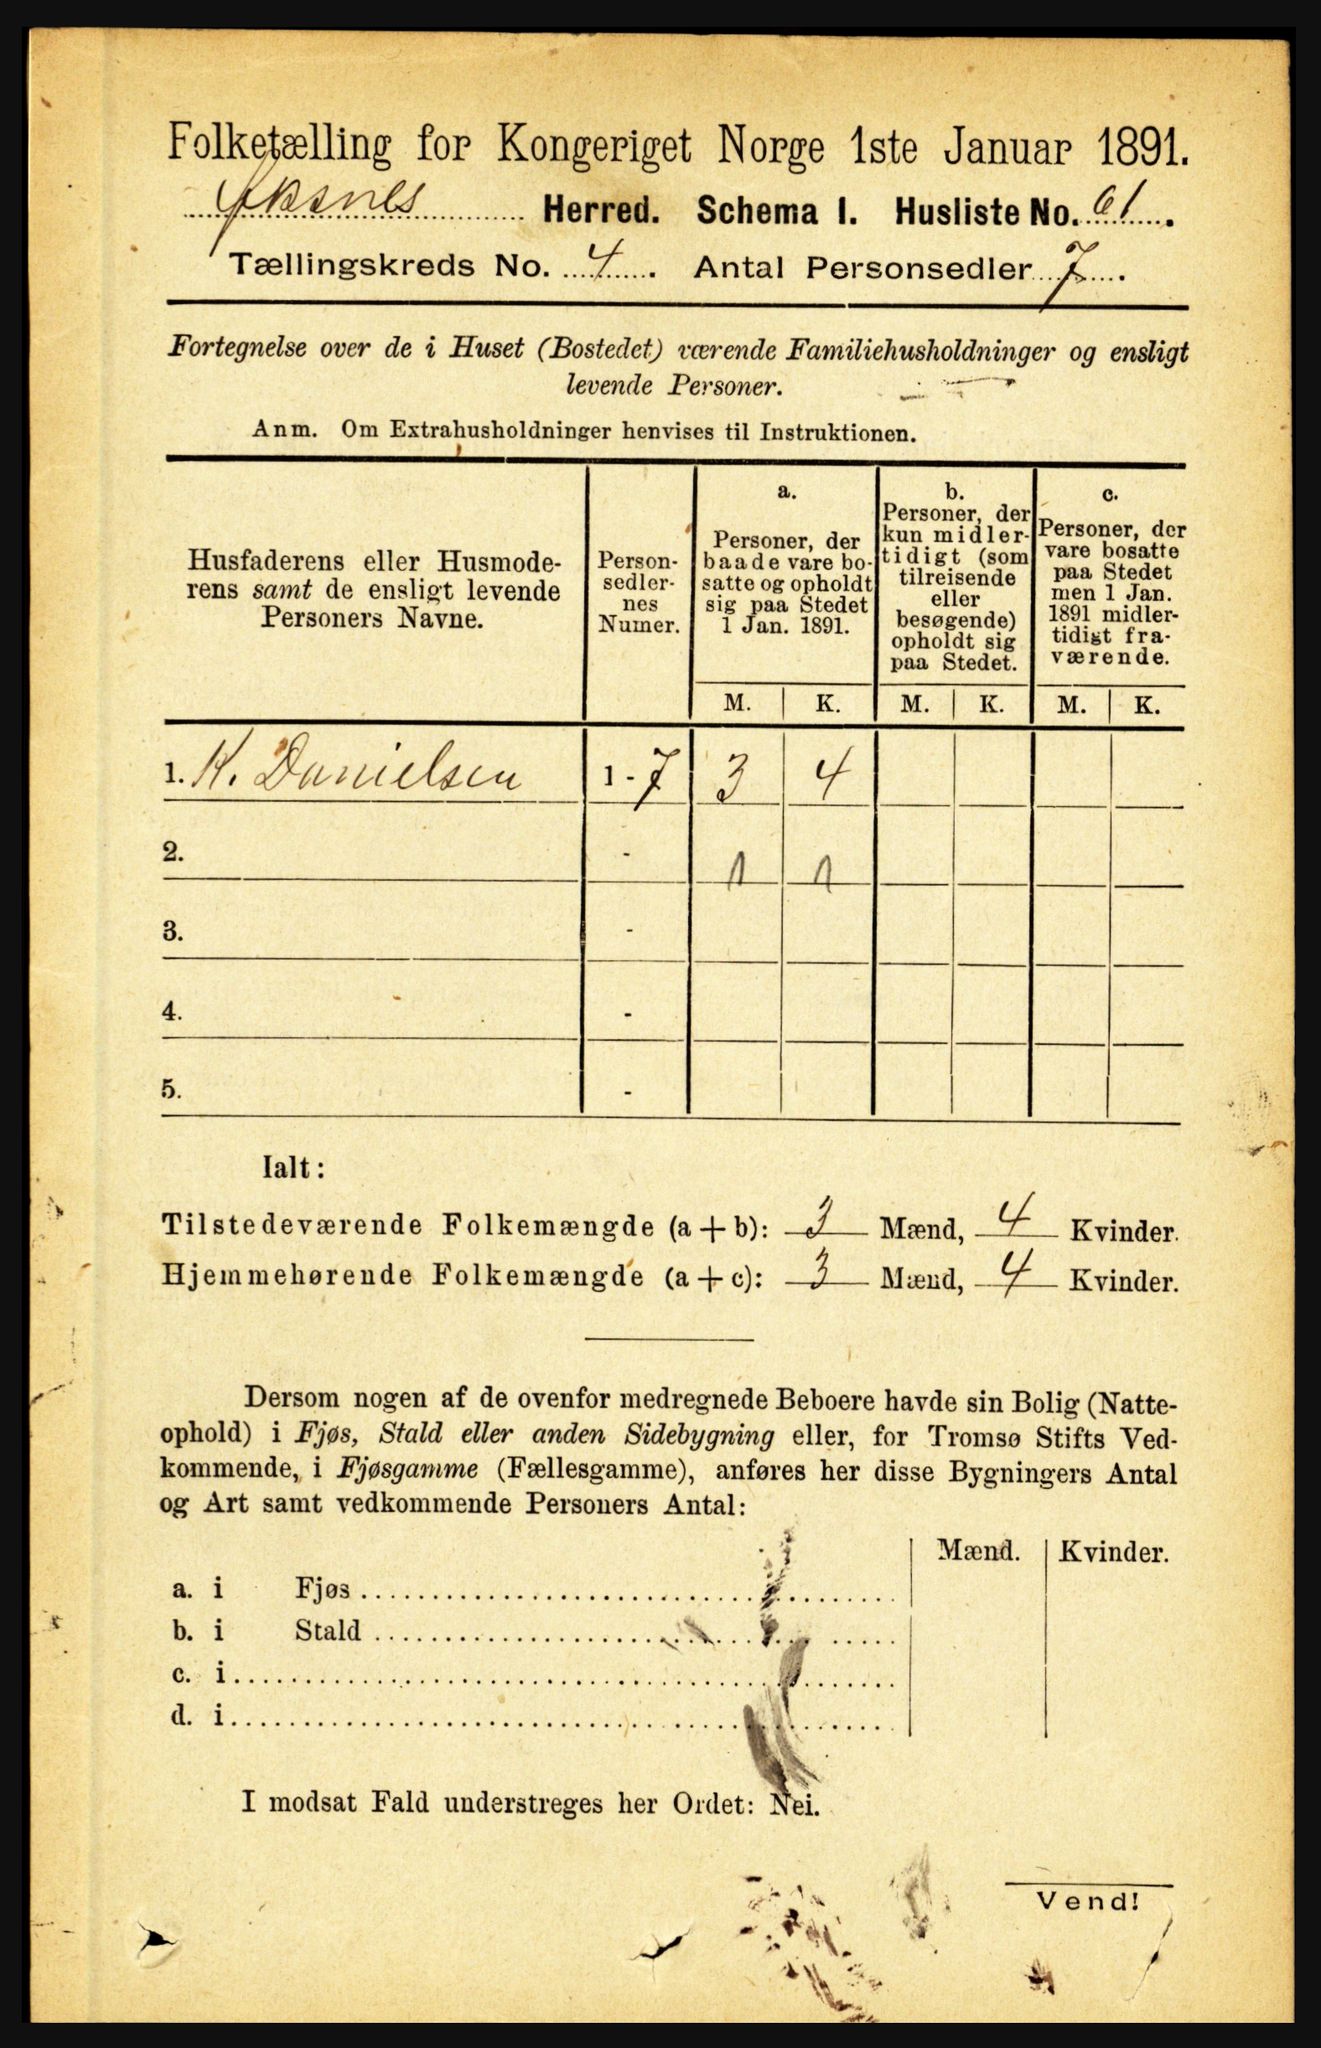 Folketælling for Kongeriget Norge 1ste Januar 1891.
Øksnes Herred. Schema I. Husliste No. 61.
Tællingskreds No. 4. Antal Personsedler 7.
Fortegnelse over de i Huset (Bostedet) værende Familiehusholdninger og ensligt
levende Personer.
Anm. Om Extrahusholdninger henvises til Instruktionen.
Husfaderens eller Husmode-
rens samt de ensligt levende
Personers Navne.
Person-
sedler-
nes
Numer.
a.
Personer, der
baade vare bo-
satte og opholdt
sig paa Stedet
1 Jan. 1891.
b.
Personer, der
kun midler-
tidigt (som
tilreisende
eller
besøgende)
opholdt sig
paa Stedet.
c.
Personer, der
vare bosatte
paa Stedet
men 1 Jan.
1891 midler-
tidigt fra-
værende.
M. K. M. K. M. K.
1. K. Danielsen 1 - 7 3 4
2. - 1 1
3. -
4. -
5. -
Ialt:
Tilstedeværende Folkemængde (a + b): 3 Mænd, 4 Kvinder.
Hjemmehørende Folkemængde (a + c): 3 Mænd, 4 Kvinder.
Dersom nogen af de ovenfor medregnede Beboere havde sin Bolig (Natte-
ophold) i Fjøs, Stald eller anden Sidebygning eller, for Tromsø Stifts Ved-
kommende, i Fjøsgamme (Fællesgamme), anføres her disse Bygningers Antal
og Art samt vedkommende Personers Antal:
Mænd. Kvinder.
a. i Fjøs
b. i Stald
c. i
d. i
I modsat Fald understreges her Ordet: Nei.
Vend!